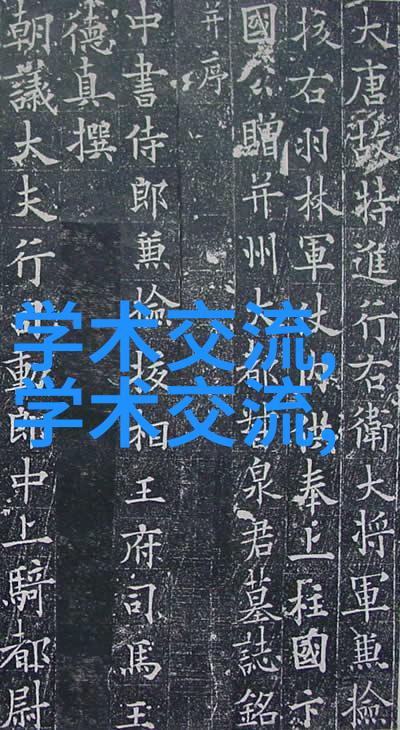 大唐故特進行右衛大將軍兼檢
挍右羽林軍仗內供奉上柱國卞
國公贈并州大都督泉君墓誌銘
并序
中書侍郎兼檢挍相王府司馬王
德真撰
朝議大夫行司勳郎中上騎都尉
学术交流,
学术交流,